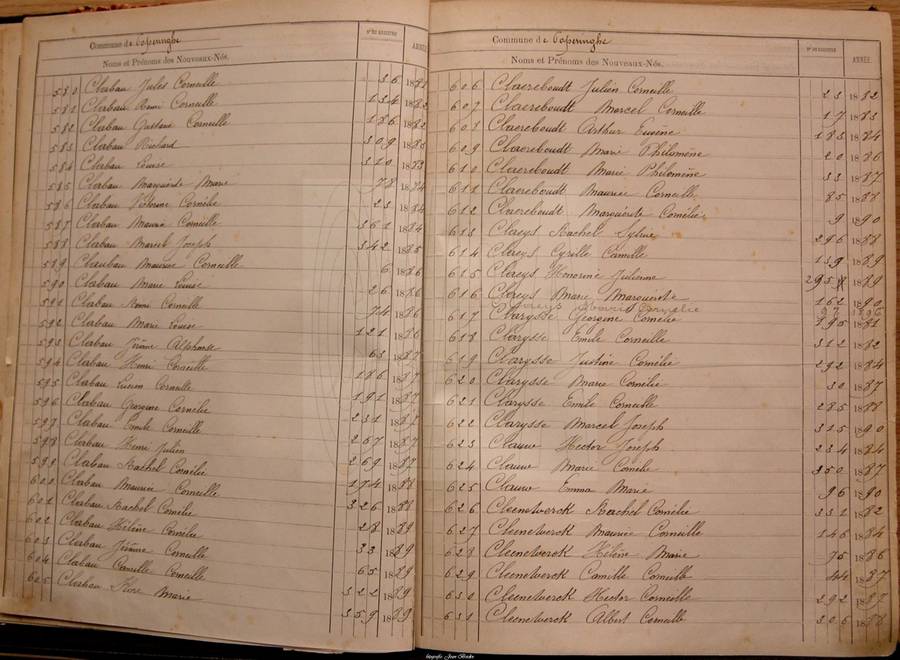 Commune de Poperinghe
Nos DU REGISTRE
ANNÉE
Noms et Prénoms des Nouveaux-Nés.
580 Clarbau Jules Corneille 36 1881
581 Clarbau Remi Corneille 134 1882
582 Clarbau Gustave Corneille 186 1882
583 Clarbau Richard 309 1883
584 Clarbau Louise 310 1883
585 Clarbau Marguerite Marie 78 1884
586 Clarbau Cornélie 23 1884
587 Clarbau Maurice Corneille 361 1884
588 Clarbau Marcel Joseph 342 1885
589 Clarbau Maurice Corneille 6 1886
590 Clarbau Marie Louise 26 1886
591 Clarbau Remi Corneille 74 1886
592 Clarbau Marie Louise 121 1886
593 Clarbau Jérôme Alphonse 63 1887
594 Clarbau Henri Corneille 186 1887
595 Clarbau Lucien Corneille 191 1887
596 Clarbau Georgine Cornélie 231 1887
597 Clarbau Emile Corneille 267 1887
598 Clarbau Henri Julien 269 1887
599 Clarbau Rachel Cornélie 174 1888
600 Clarbau Maurice Corneille 326 1888
601 Clarbau Rachel Cornélie 28 1889
602 Clarbau Hélène Cornélie 33 1889
603 Clarbau Jérôme Corneille 65 1889
604 Clarbau Camille Corneille 322 1889
605 Clarbau Marie 359 1889
Commune de Poperinghe
Nos DU REGISTRE
ANNÉE
Noms et Prénoms des Nouveaux-Nés.
606 Claereboudt Julien Corneille 23 1882
607 Claereboudt Marcel Corneille 17 1883
608 Claereboudt Arthur Eugène 183 1884
609 Claereboudt Marie Philomène 20 1886
610 Claereboudt Marie Philomène 33 1887
611 Claereboudt Maurice Corneille 85 1888
612 Claereboudt Marguerite Cornélie 9 1890
613 Claeys Rachel Sylvie 290 1888
614 Claeys Cyrille Camille 139 1889
615 Claeys Honorine Julienne 295 1889
616 Claeys Marie Marguerite 162 1890
617 Clarysse Georgine Cornélie 195 1881
618 Clarysse Emile Corneille 312 1882
619 Clarysse Justine Cornélie 292 1884
620 Clarysse Marie Cornélie 30 1887
621 Clarysse Emile Corneille 285 1888
622 Clarysse Marcel Joseph 315 1890
623 Clauw Hector Joseph 234 1884
624 Clauw Marie Cornélie 350 1887
625 Clauw Emma Marie 96 1890
626 Cleenewerck Rachel Cornélie 331 1882
627 Cleenewerck Maurice Corneille 146 1884
628 Cleenewerck Hélène Marie 75 1886
629 Cleenewerck Camille Corneille 44 1887
630 Cleenewerck Hector Corneille 292 1887
630 Cleenewerck Albert Corneille 306 1888